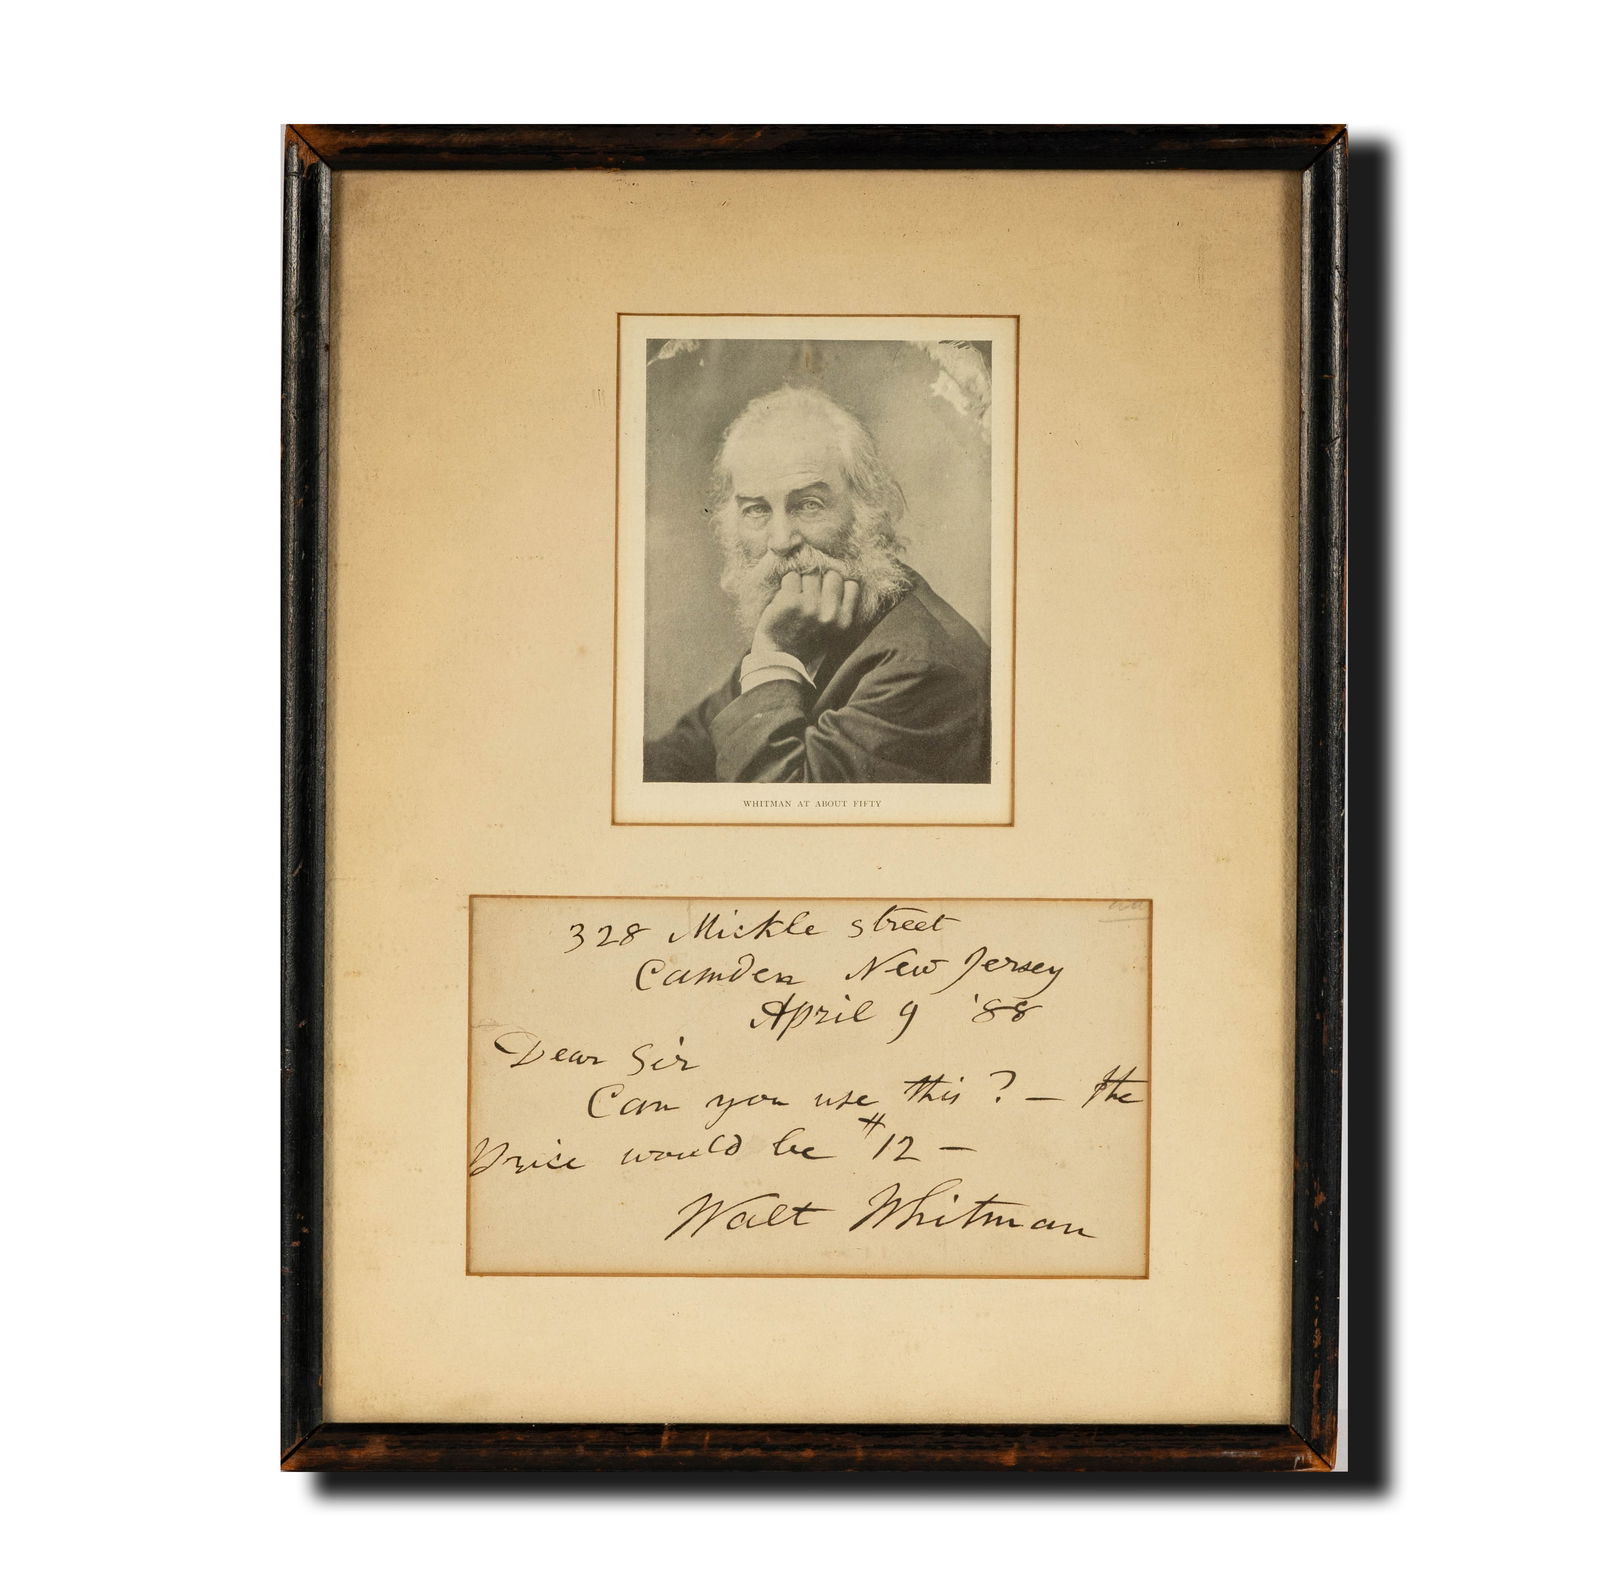 WHITMAN AT ABOUT FIFTY
328 Mickle street
Camden New Jersey
April 9 '88
Dear Sir
Can you use this? — the
price would be $12 —
Walt Whitman